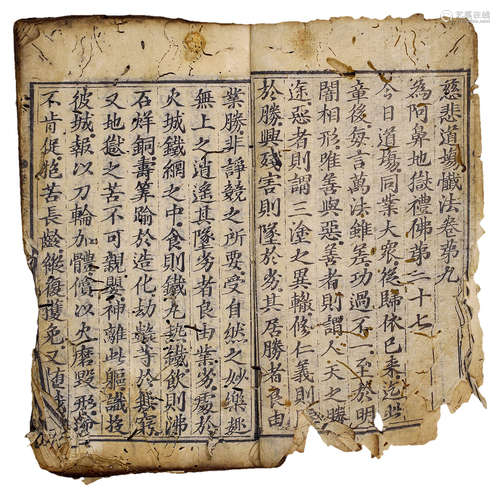 慈悲道場懺法卷第九
為阿鼻地獄禮佛第二十七
今日道場同業大衆從歸依已來迄此
章後每言萬法雖差功過不一至於明
闇相形唯善與惡善者則謂人天之勝
途惡者則謂三塗之異轍修仁義則
於勝興殘害則墜於劣其居勝者良由
業勝非諍競之所要受自然之妙樂趣
無上之逍遙其墜劣者良由業劣處於
火城鐵網之中食則鐵丸熱鐵飲則沸
石烊銅壽筭踰於造化劫數等於無窮
又地獄之苦不可親嬰神離此軀識投
彼城報以刀輪加體償以火磨毀形
不肯促抱苦長齡縱復獲免又墮